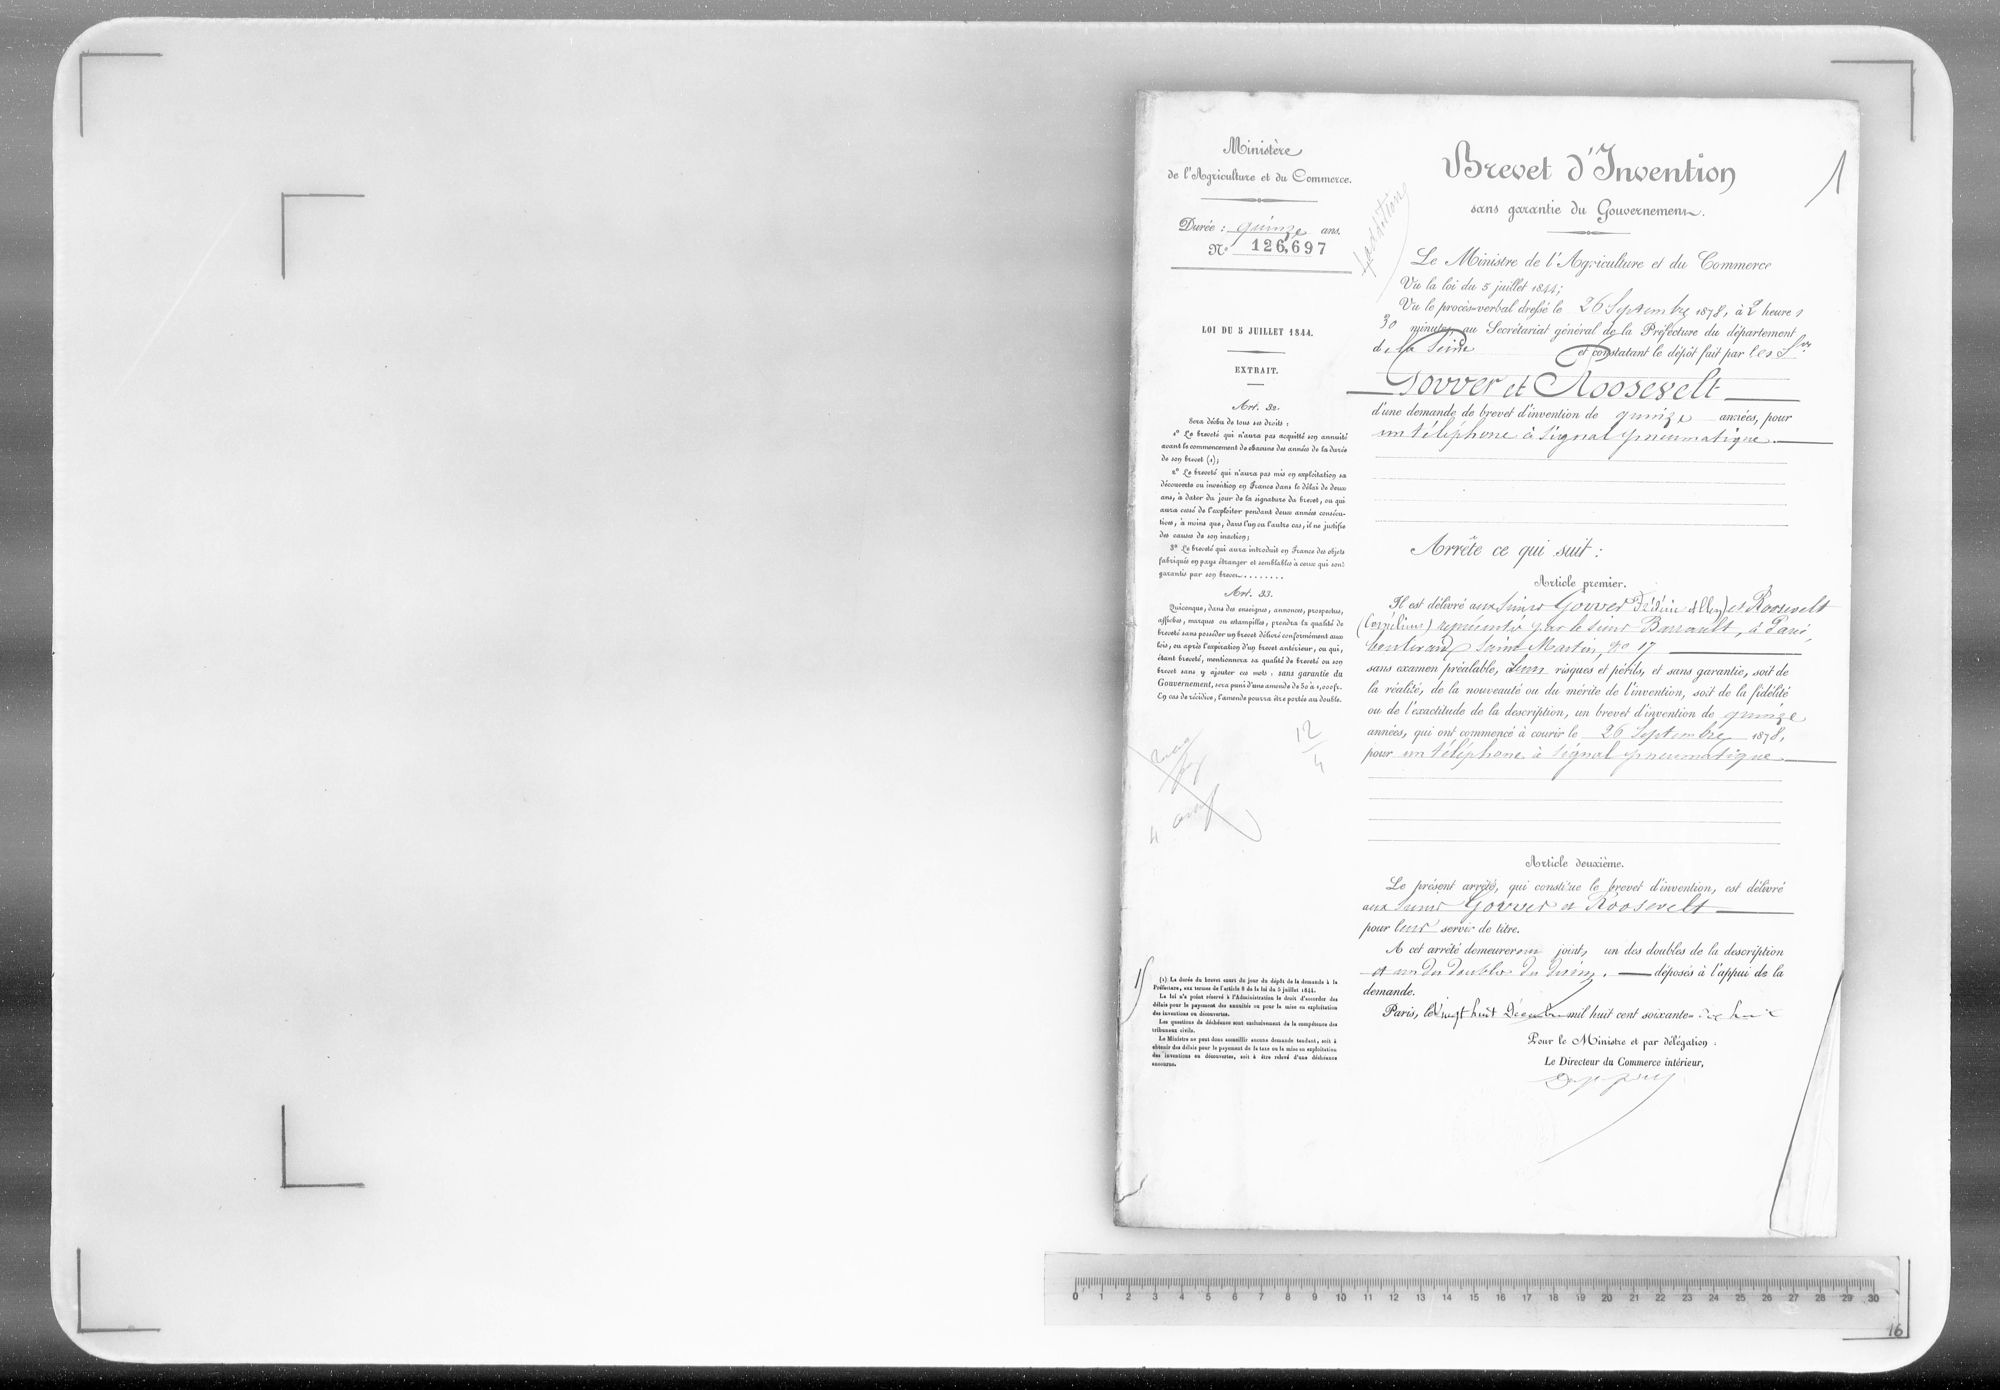 Ministère
de l'Agriculture et du Commerce.
Durée : quinze ans.
N° 126,697
LOI DU 5 JUILLET 1844.
EXTRAIT.
Art. 32.
Sera déchu de tous ses droits :
1° Le breveté qui n'aura pas acquitté son annuité
avant le commencement de chacune des années de la durée
de son brevet (1);
2° Le breveté qui n'aura pas mis en exploitation sa
découverte ou invention en France dans le délai de deux
ans, à dater du jour de la signature du brevet, ou qui
aura cessé de l'exploiter pendant deux années consécu-
tives, à moins que, dans l'un ou l'autre cas, il ne justifie
des causes de son inaction;
3° Le breveté qui aura introduit en France des objets
fabriqués en pays étranger et semblables à ceux qui sont
garantis par son brevet........
Art. 33.
Quiconque, dans des enseignes, annonces, prospectus,
affiches, marques ou estampilles, prendra la qualité de
breveté sans posséder un brevet délivré conformément aux
lois, ou après l'expiration d'un brevet antérieur, ou qui,
étant breveté, mentionnera sa qualité de breveté ou son
brevet sans y ajouter ces mots : sans garantie du
Gouvernement, sera puni d'une amende de 50 à 1,000 fr.
En cas de récidive, l'amende pourra être portée au double.
12
4
4
(1) La durée du brevet court du jour du dépôt de la demande à la
Préfecture, aux termes de l'article 8 de la loi du 5 juillet 1844.
La loi n'a point réservé à l'Administration le droit d'accorder des
délais pour le payement des annuités ou pour la mise en exploitation
des inventions ou découvertes.
Les questions de déchéance sont exclusivement de la compétence des
tribunaux civils.
Le Ministre ne peut donc accueillir aucune demande tendant, soit à
obtenir des délais pour le payement de la taxe ou la mise en exploitation
des inventions ou découvertes, soit à être relevé d'une déchéance
encourue.
Brevet d'Invention
1
sans garantie du Gouvernement.
addition
Le Ministre de l'Agriculture et du Commerce
Vu la loi du 5 juillet 1844;
Vu le procès-verbal dressé le 26 Septembre 1878, à 2 heures
30 minutes, au Secrétariat général de la Préfecture du département
de la Seine et constatant le dépôt fait par les Srs
Gower et Roosevelt
d'une demande de brevet d'invention de quinze années, pour
un téléphone à signal pneumatique.
Arrête ce qui suit :
Article premier.
Il est délivré aux sieurs Gower (Frédéric Allen) et Roosevelt
(Cornélius) représentés par le sieur Barrault, à Paris,
boulevard Saint Martin, no 17
sans examen préalable, à leurs risques et périls, et sans garantie, soit de
la réalité, de la nouveauté ou du mérite de l'invention, soit de la fidélité
ou de l'exactitude de la description, un brevet d'invention de quinze
années, qui ont commencé à courir le 26 Septembre 1878,
pour un téléphone à signal pneumatique
Article deuxième.
Le présent arrêté, qui constitue le brevet d'invention, est délivré
aux sieurs Gower et Roosevelt
pour leur servir de titre.
A cet arrêté demeureront joints un des doubles de la description
et un des doubles du dessin. déposés à l'appui de la
demande.
Paris, le vingt huit Décembre mil huit cent soixante-dix huit
Pour le Ministre et par délégation :
Le Directeur du Commerce intérieur,
0 1 2 3 4 5 6 7 8 9 10 11 12 13 14 15 16 17 18 19 20 21 22 23 24 25 26 27 28 29 30
16